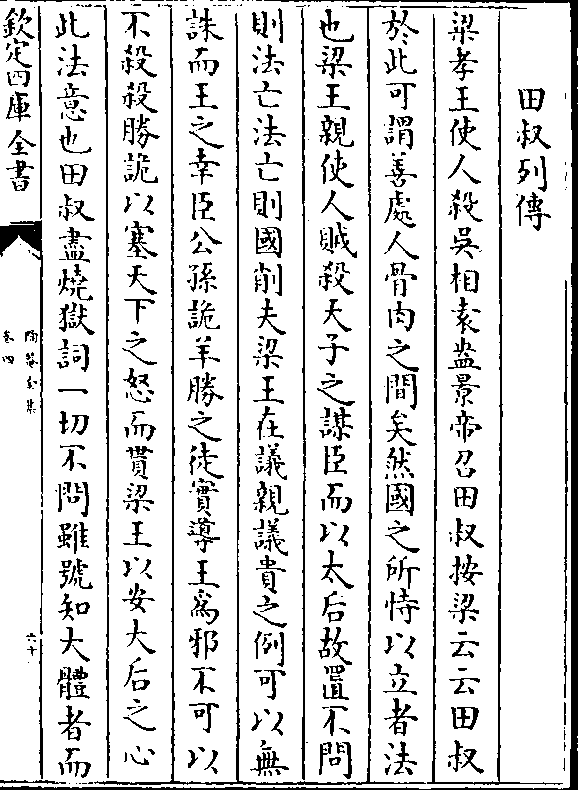 田叔列傳
梁孝王使人殺吳相袁盎景帝召田叔按梁云云田叔
於此可謂善處人骨肉之間矣然國之所恃以立者法
也梁王親使人賊殺天子之謀臣而以太后故置不問
則法亡法亡則國削夫梁王在議親議貴之例可以無
誅而王之幸臣公孫詭羊勝之徒實導王爲邪不可以
不殺殺勝詭以塞天下之怒而貰梁王以安大后之心
此法意也田叔盡燒獄詞一切不問雖號知大體者而
欽定四庫全書
陶菴全集
卷四
六十